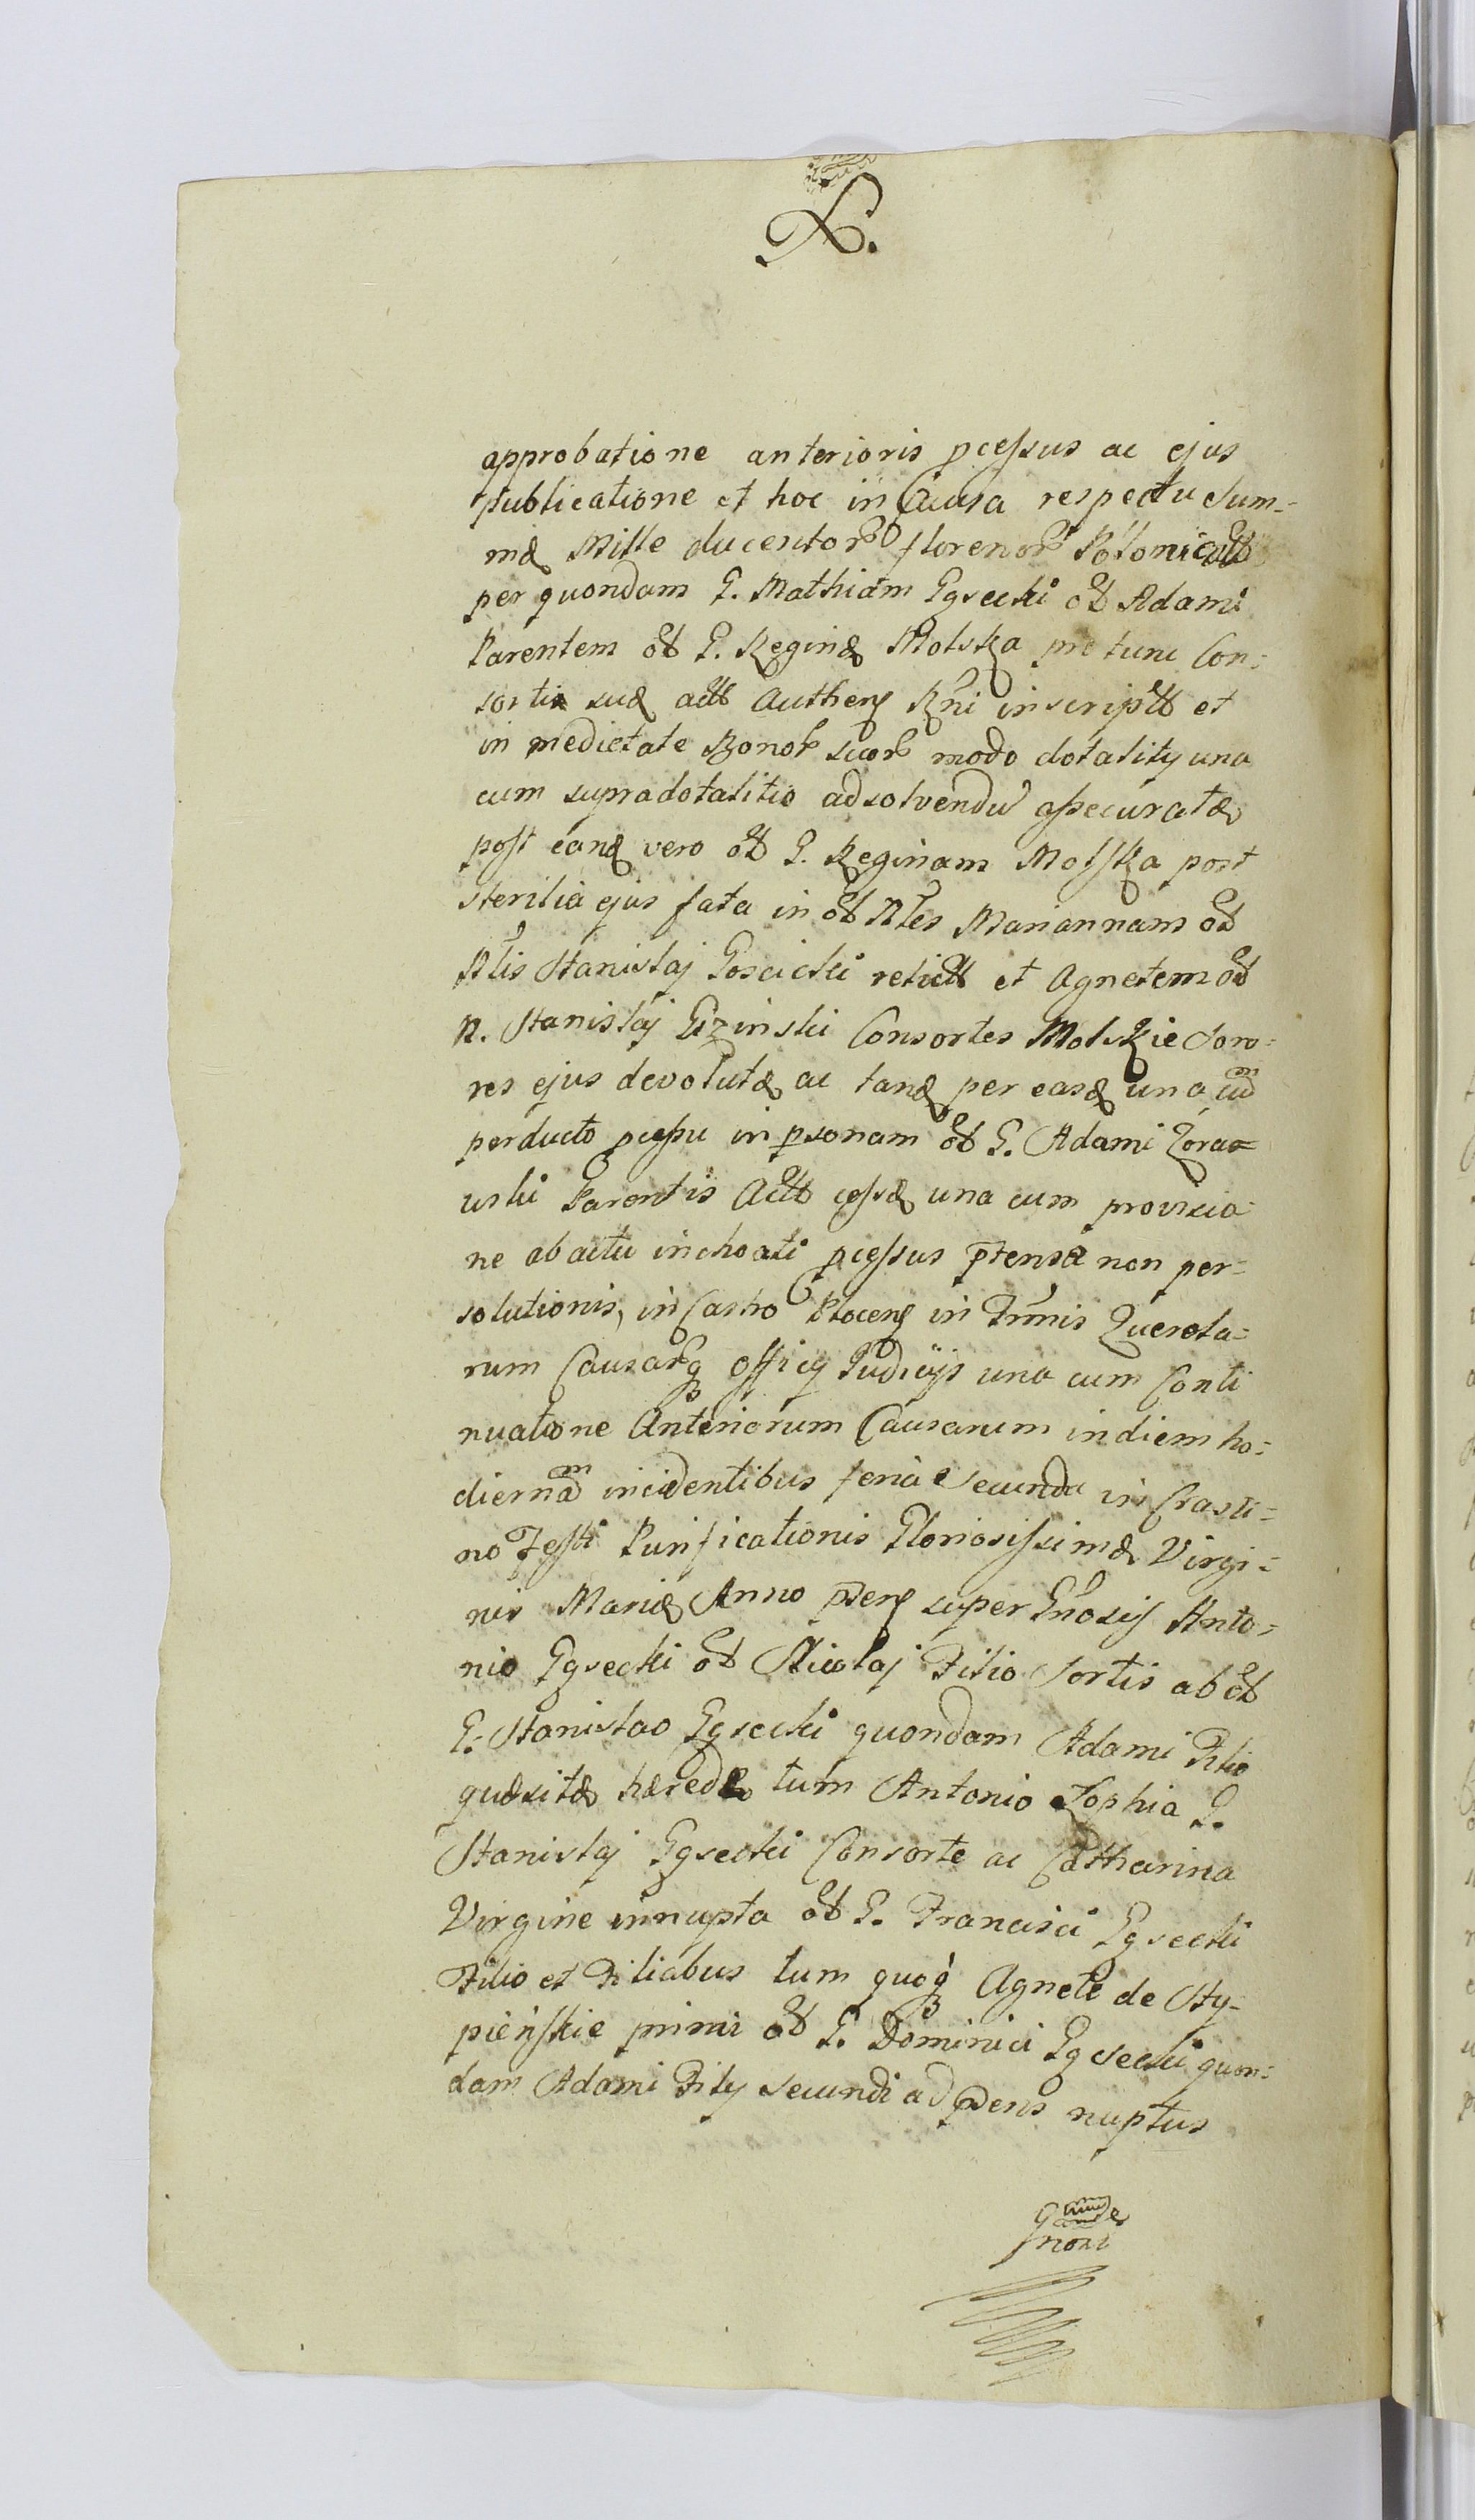 approbatione anterioris pcessus ac ejus
publicatione et hoc in Causa respectu Sum-
mæ Mille ducentor florenor Polonical
per quondam G. Mathiam Gąsecki ol Adami
Parentem ol G. Reginæ Molska pro tunc Con:
sortis suæ act Authen Rni inscript et
in medietate Bonor suor modo dotality una
cum supradotalitio adsolvendu assecuratæ
post eanq vero ol G. Reginam Molska post
sterilia ejus fata in ol Nles Mariannam ol
Nlis Stanislaj Goscicki relict et Agnetem ol
N. Stanislaj Gizinski Consortes Molskie Soro:
res ejus devolutæ ac tanq per easq una cum
perducto pcessu in psonam ol G. Adami
Parentis Act cessæ una cum provisio-
ne ab actu inchoati pcessus ptensæ non per-
solutionis, in Castro Plocen in Trmis Querela-
rum Causarq Officy Judicijs una cum Conti
nuatione Anteriorum Causarum in diem ho:
diernam incidentibus feria Secunda in Crasti-
no Festi Purificationis Gloriosissimæ Virgi:
nis Mariæ Anno pten super Gnosis Anto,
nio Gąsecki ol Nicolaj Filio Sortis ab ol
G. Stanislao Gąsecki quondam Adami Filio
quæsitæ hærede tum Antonio Zophia G.
Stanislaj Gąsecki Consorte ac Catharina
Virgine innupta ol G. Francisci Gąsecki
Filio et Filiabus tum quoq Agnete de Sty-
pieńskie primi ol G. Dominici Gąsecki quon:
dam Adami Fily secundi ad pdens nuptus